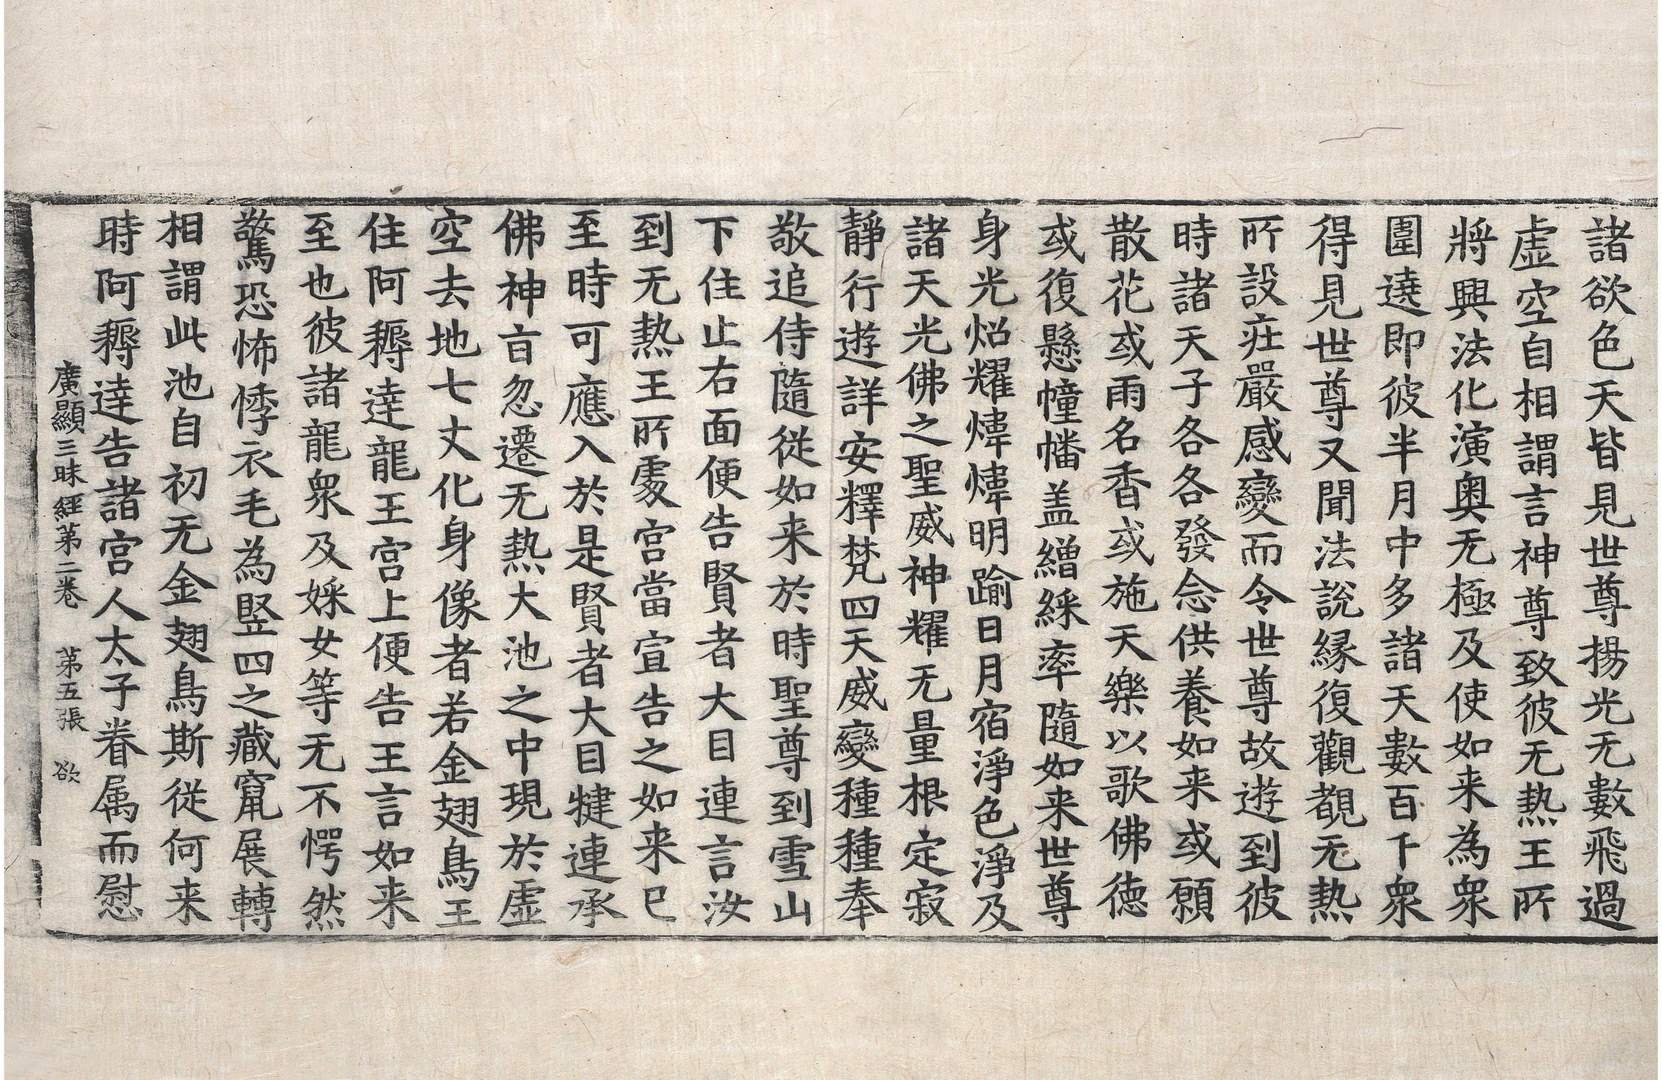 諸欲色天皆見世尊揚光无數飛過
虛空自相謂言神尊致彼无熱王所
將興法化演奥无極及使如来為衆
圍遶即彼半月中多諸天數百千衆
得見世尊又聞法說縁復觀覩无熱
所設莊嚴感變而令世尊故遊到彼
時諸天子各各發念供養如来或願
散花或雨名香或施天樂以歌佛德
或復懸幢幡盖繒綵率隨如来世尊
身光炤耀煒煒明踰日月宿淨色淨及
諸天光佛之聖威神耀无量根定寂
靜行遊詳安釋梵四天威變種種奉
敬追侍隨從如来於時聖尊到雪山
下住止右面便告賢者大目連言汝
到无熱王所處宮當宣告之如来已
至時可應入於是賢者大目揵連承
佛神旨忽遷无熱大池之中現於虛
空去地七丈化身像者若金翅鳥王
住阿耨達龍王宮上便告王言如来
至也彼諸龍衆及婇女等无不愕然
驚恐怖悸衣毛為竪四之藏竄展轉
相謂此池自初无金翅鳥斯從何来
時阿耨達告諸宮人太子眷属而慰
廣顯三昧經第二卷　第五張　欲